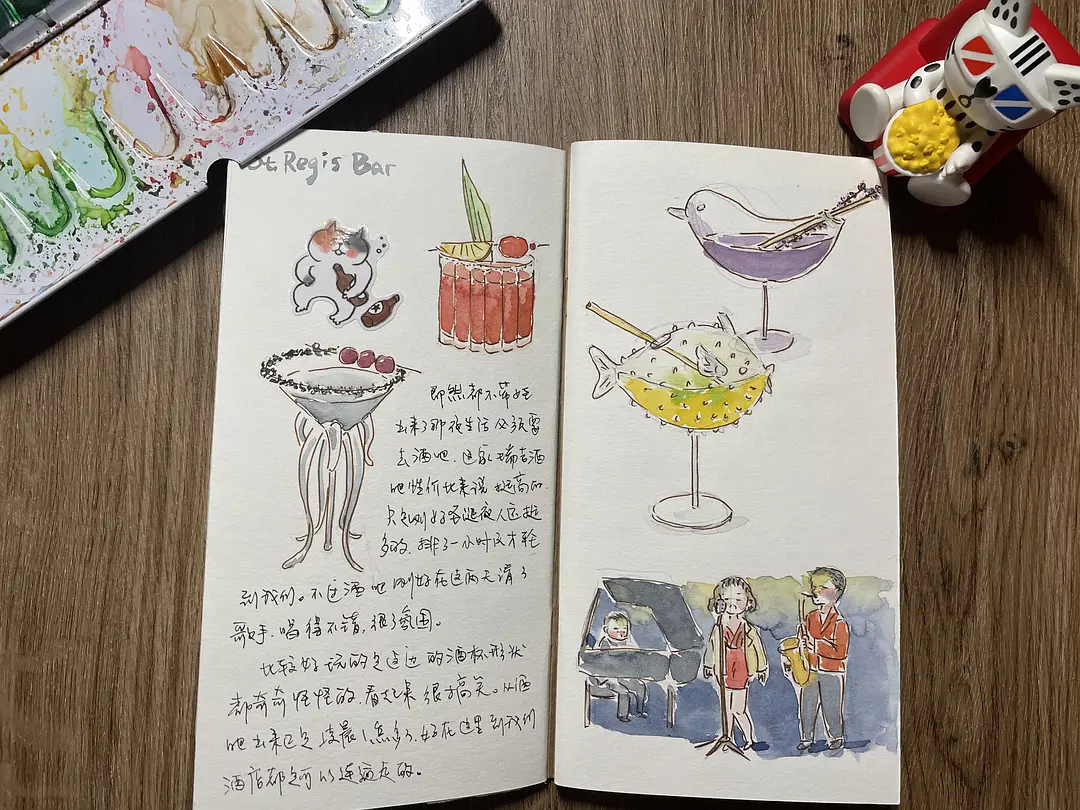 St. Regis Bar
即然都不带娃
出来了那夜生活必须要
去酒吧.这家瑞吉酒
吧性价比来说挺高的.
只是刚好圣诞夜人还挺
多的.排了一小时这才轮
到我们。不过酒吧刚好在这两天请了
歌手.唱得不错,很有氛围。
比较好玩的是这边的酒杯形状
都奇奇怪怪的.看起来很搞笑。从酒
吧出来已是凌晨1点多了.好在这里到我们
酒店都是可以连通走的。